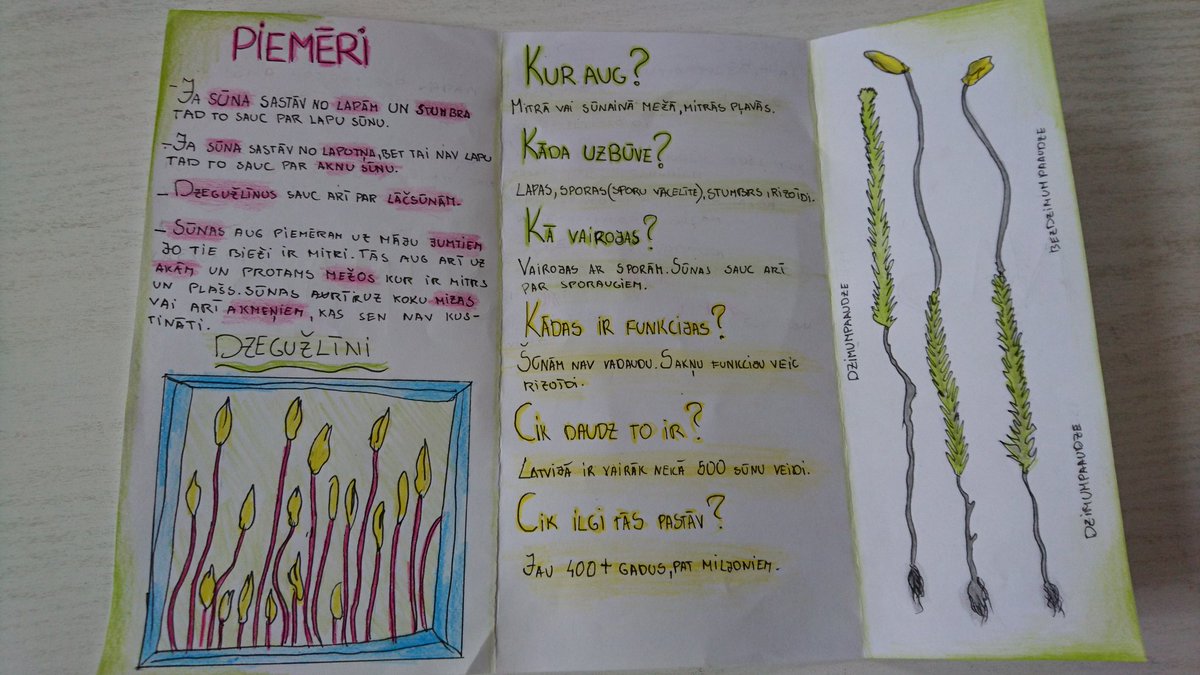 PIEMĒRI
- JA SŪNA SASTĀV NO LAPĀM UN STUMBRA
TAD TO SAUC PAR LAPU SŪNU.
- JA SŪNA SASTĀV NO LAPOTŅA, BET TAI NAV LAPU
TAD TO SAUC PAR AKŅU SŪNU.
- DZEGUŽLĪNUS SAUC ARĪ PAR LĀČSŪNĀM.
- SŪNAS AUG PIEMĒRAM UZ MĀJU JUMTIEM
JO TIE BIEŽI IR MITRI. TĀS AUG ARĪ UZ
AKĀM UN PROTAMS MEŽOS KUR IR MITRS
UN PLAŠS. SŪNAS UZ KOKU MIZAS
VAI ARĪ AKMEŅIEM, KAS SEN NAV KUS-
TINĀTI.
DZEGUŽLĪNI
KUR AUG?
MITRĀ VAI SŪNAINĀ MEŽĀ, MITRĀS PĻAVĀS.
KĀDA UZBŪVE?
LAPAS, SPORAS (SPORU VĀCELĪTE), STUMBRS, RIZOĪDI.
KĀ VAIROJAS?
VAIROJAS AR SPORĀM. SŪNAS SAUC ARĪ
PAR SPORAUGIEM.
KĀDAS IR FUNKCIJAS?
SŪNĀM NAV VADAUDU. SAKŅU FUNKCIJU VEIC
RIZOĪDI.
CIK DAUDZ TO IR?
LATVIJĀ IR VAIRĀK NEKĀ 500 SŪNU VEIDI.
CIK ILGI TĀS PASTĀV?
JAU 400+ GADUS, PAT MILJONIEM.
DZIMUMPAAUDZE
BEZDZIMUMPAAUDZE
DZIMUMPAAUDZE